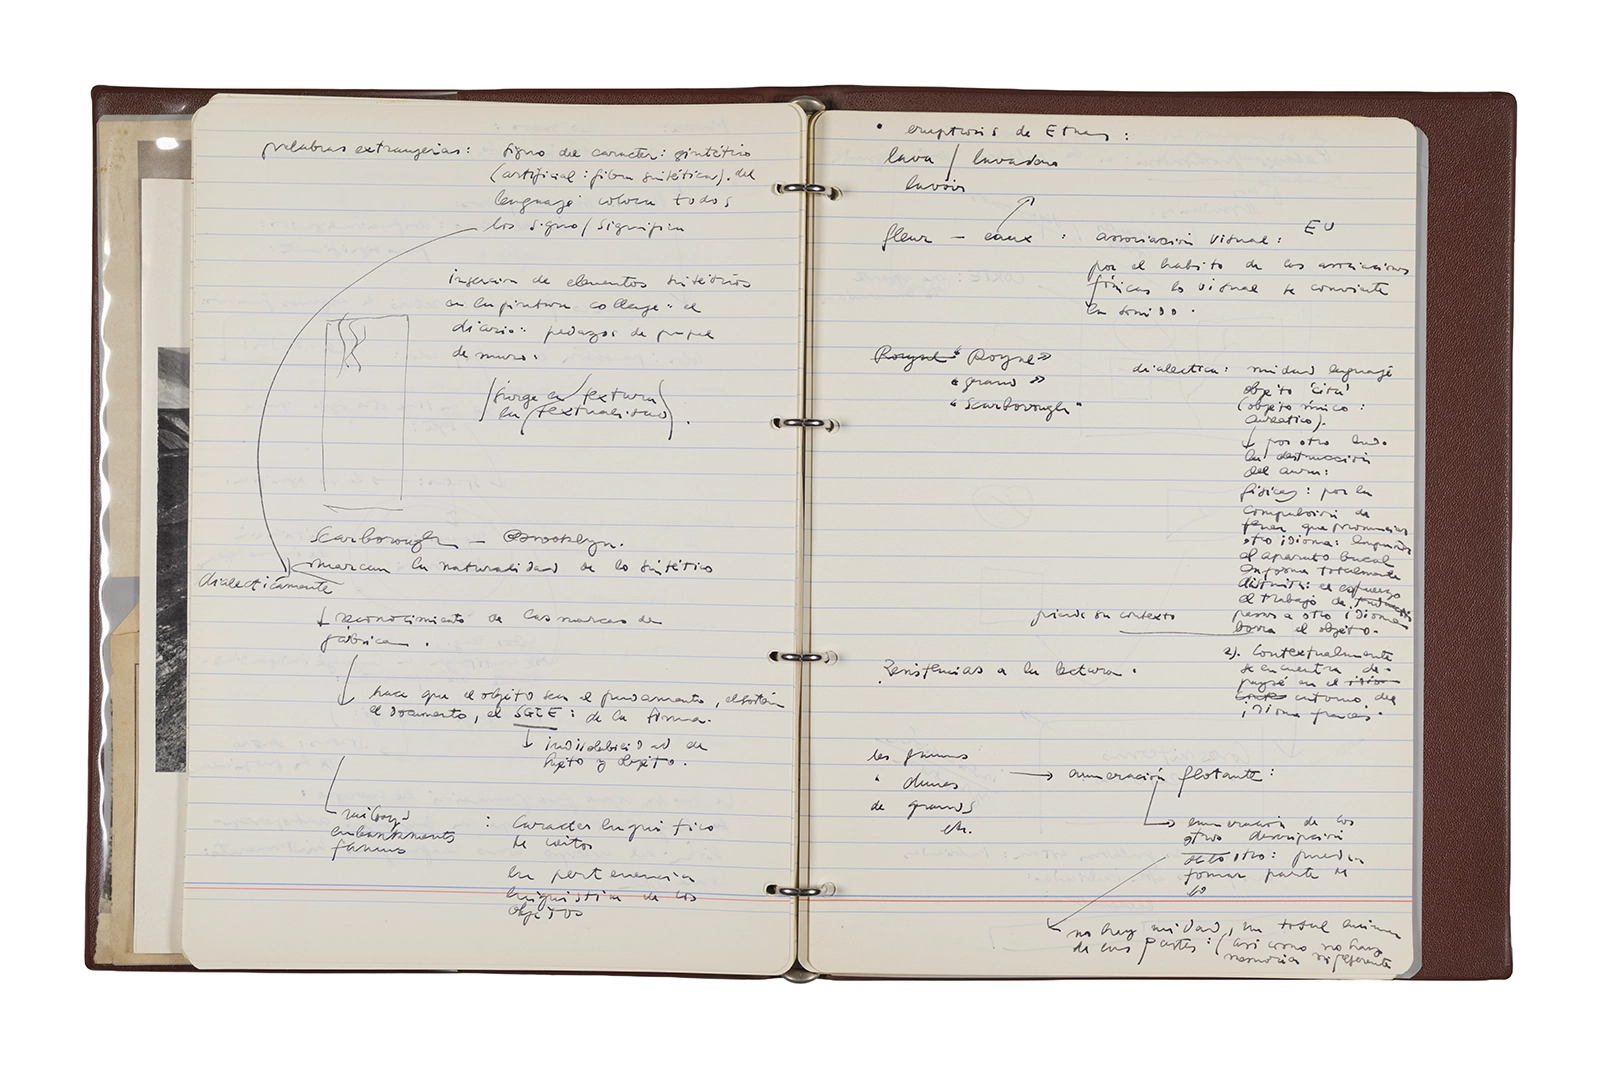 palabras extrangeras: signo del caracter: sintético
(artificial: fibra sintética). del
lenguaje coloca todos
los signo/significa
insercion de elementos sintéticos
en la pintura collage: el
diario: pedazos de papel
de muro.
surge en textura
en textualidad.
Scarborough — Brooklyn.
marcan la naturalidad de lo sintético
dialecticamente
reconocimiento de las marcas de
fábrica.
hace que el objeto sea el fundamento, el sostén
el documento, el de la forma.
indisolubilidad de
sujeto y objeto.
railways
embankments
famous
: caracter linguistico
de
la pertenencia
linguistica de los
objetos
• eruptions de Etnas:
lava / lavadero
lavoir
fleur — eaux : asociación visual: EU
por el habito de las asociaciones
fónicas lo visual se convierte
en sonido.
"Royne"
"grand"
"Scarborough"
dialectica: unidad lenguaje
objeto 'cita'
(objeto único:
auratico).
por otro lado
la destrucción
del aura:
físicas: por la
compulsión de
tener que pronunciar
otro idioma:
el aparato bucal
totalmente
distinta: el esfuerzo
el trabajo de
pasar a otro idioma
borra el objeto.
pierde su contexto
2). Contextualmente
se encuentra de-
paysé en el
entorno del
idioma francés.
Resistencias a la lectura.
les
dunes
de grands
etc.
enumeración flotante:
enumeración de los
otros descripción
de lo otro: pueden
formar parte de
lo
no hay unidad, un total
de sus partes: (así como no hay
memoria ni referente